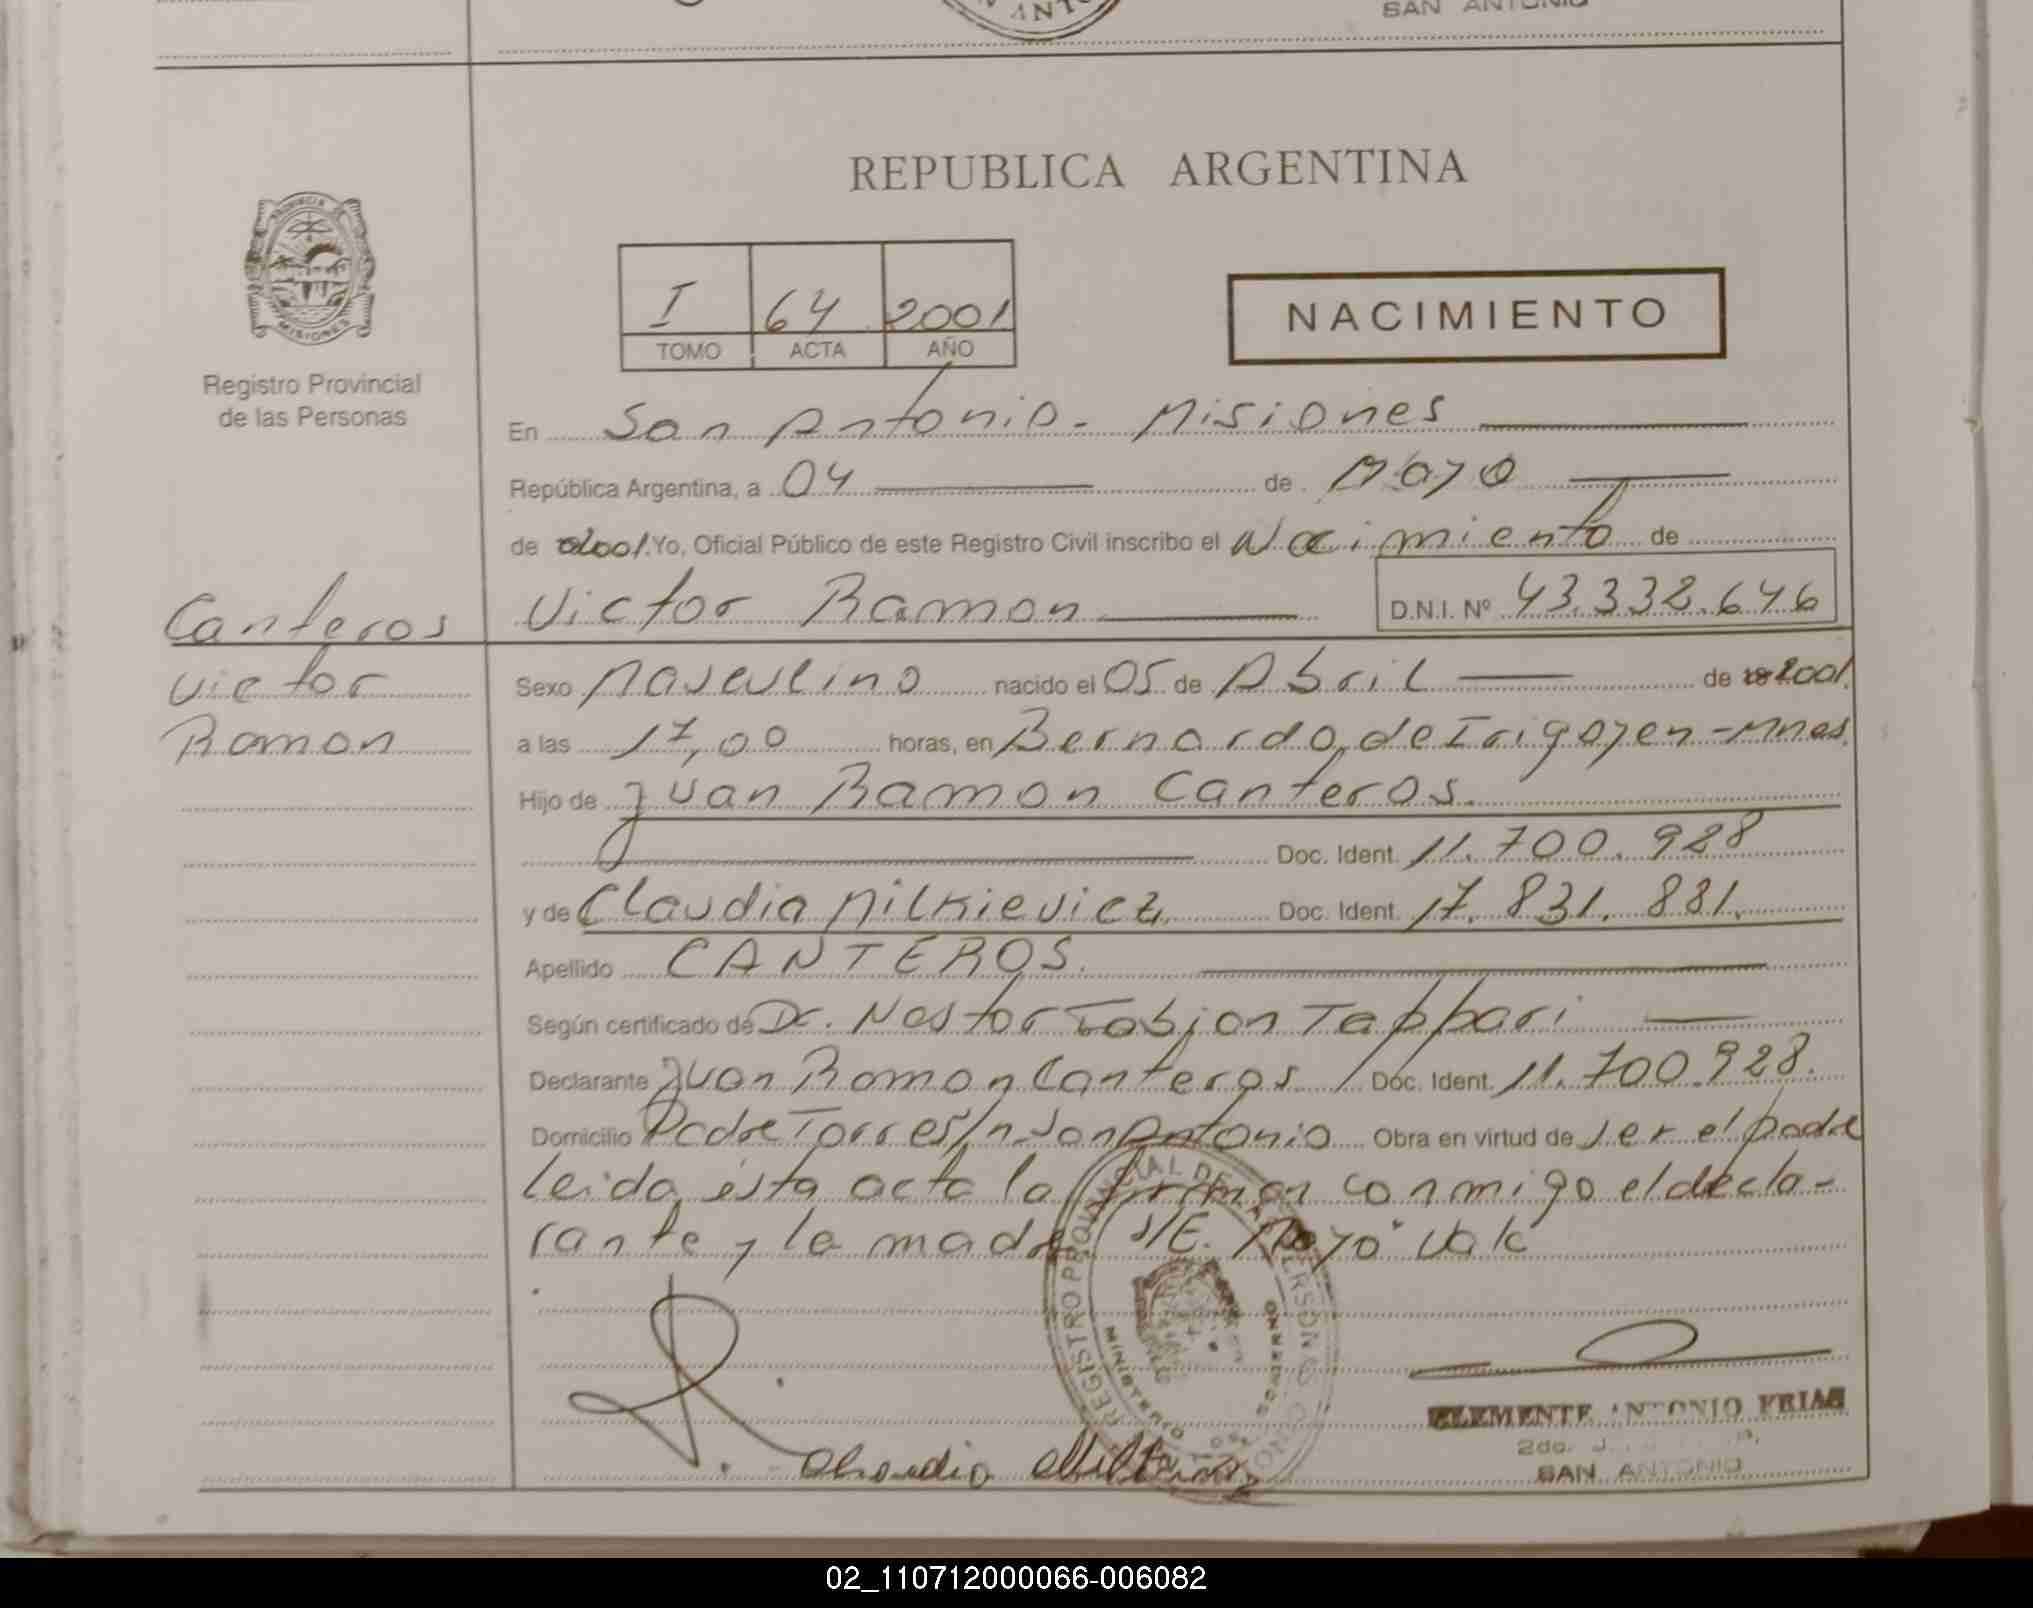 SAN ANTONIO
REPUBLICA ARGENTINA
PROVINCIA DE
MISIONES
Registro Provincial
de las Personas
I 64 2001
TOMO ACTA AÑO
NACIMIENTO
En San Antonio - Misiones
República Argentina, a 04 de Mayo
de 2001. Yo, Oficial Público de este Registro Civil inscribo el Nacimiento de
Canteros
Victor
Ramon
Victor Ramon D.N.I. Nº 43.332.646
Sexo Masculino nacido el 05 de Abril de 2001.
a las 17,00 horas, en Bernardo de Irigoyen - Mnes.
Hijo de Juan Ramon Canteros.
Doc. Ident. 11.700.928
y de Claudia Milkievicz, Doc. Ident. 17.831.881.
Apellido CANTEROS.
Según certificado de Dr. Nestor Fabian Tappari
Declarante Juan Ramon Canteros Doc. Ident. 11.700.928.
Domicilio Padre Torres/n. San Antonio Obra en virtud de ser el padre
leida ésta acta la firman conmigo el decla-
rante y la madre S/E. "Mayo" Vale
REGISTRO PROVINCIAL DE LAS PERSONAS
MINISTERIO
GOBIERNO
Claudia
CLEMENTE ANTONIO FRIAS
2do.
SAN ANTONIO
02_110712000066-006082